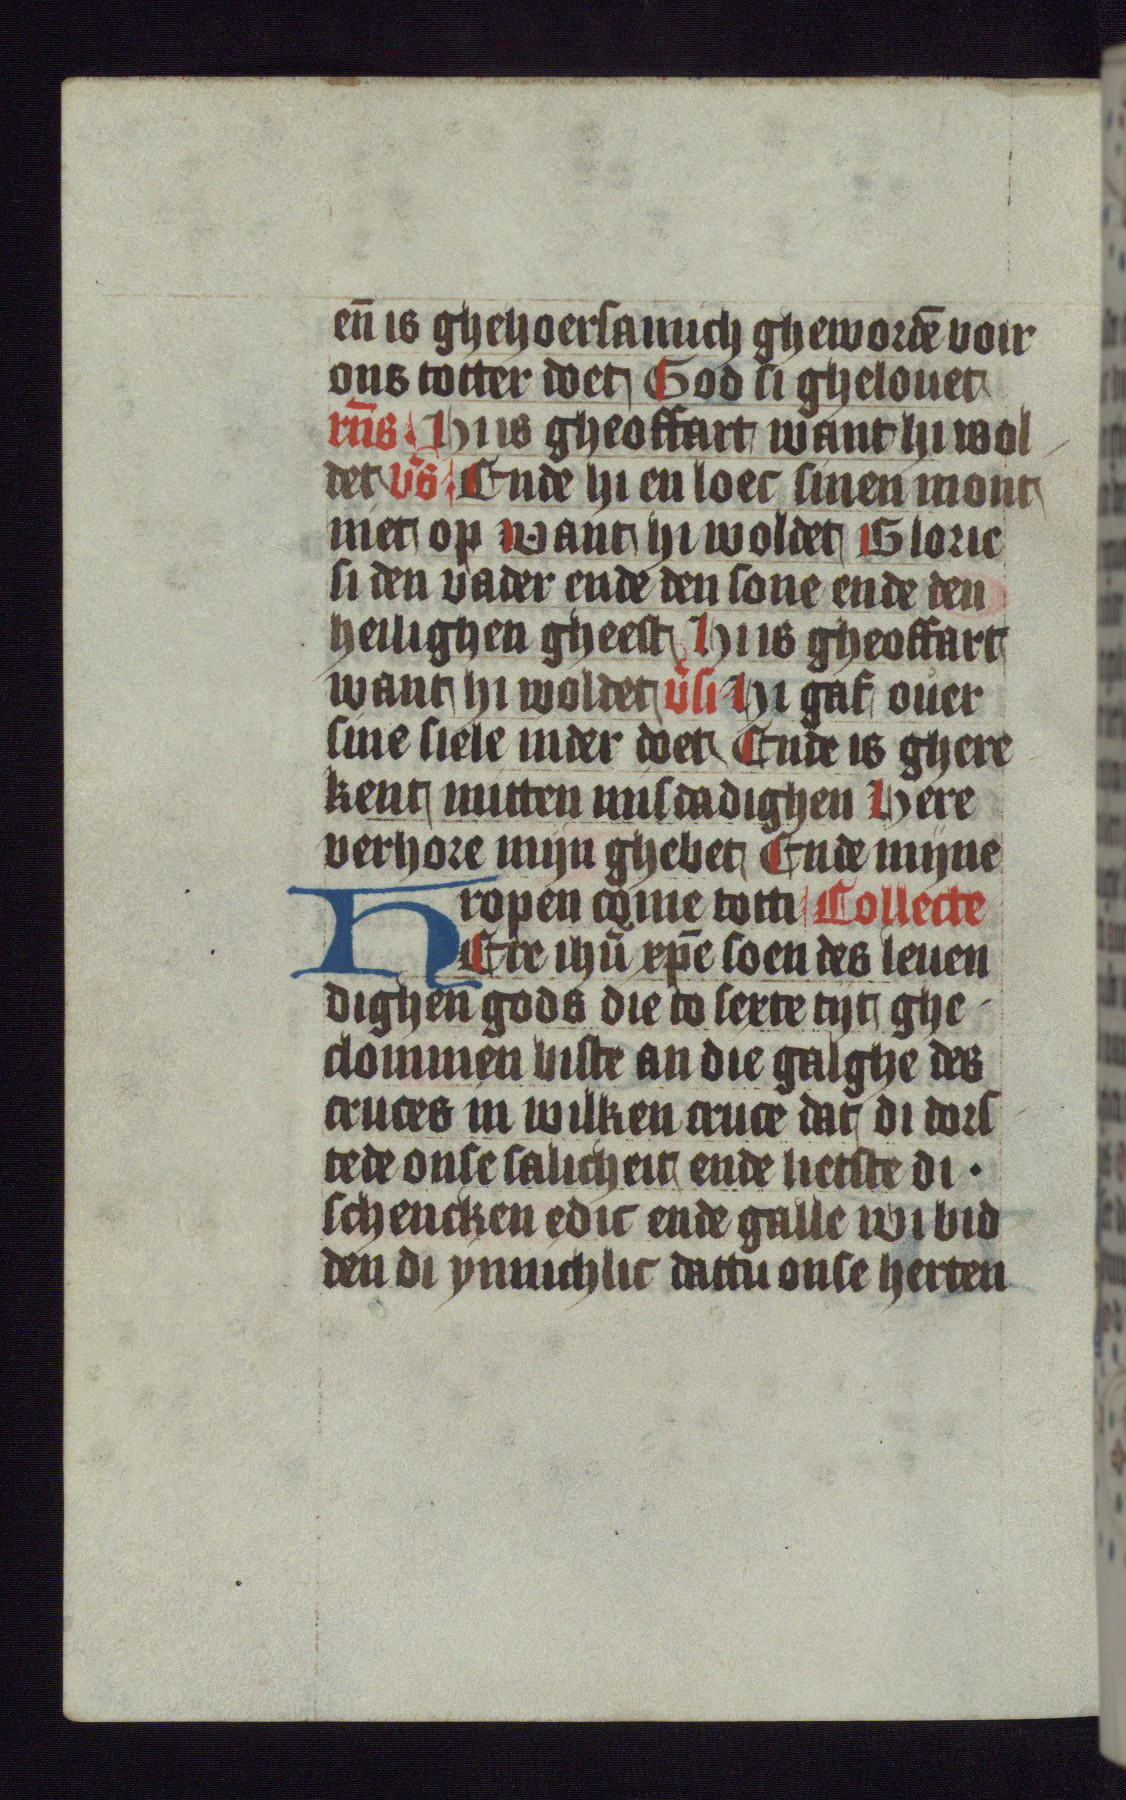 en̄ is ghehoersamich ghewordē voir
ons totter doet God si ghelouet
rn̄s Hi is gheoffart want hi wol
det v̄s Ende hi en loec sinen mont
niet op want hi woldet Glorie
si den vader ende den sone ende den
heilighen gheest Hi is gheoffart
want hi woldet v̄si Hi gaf ouer
sine siele inder doet Ende is ghere
kent mitten misdadighen Here
verhore mijn ghebet Ende mijne
ropen come totti Collecte
HEre ihū xp̄e soen des leuen
dighen gods die to sexte tijt ghe
clommen biste an die galghe des
cruces in wilken cruce dat di dors
tede onse salicheit ende lietste di ·
schencken edic ende galle wi bid
den di ynnichlic dattu onse herten